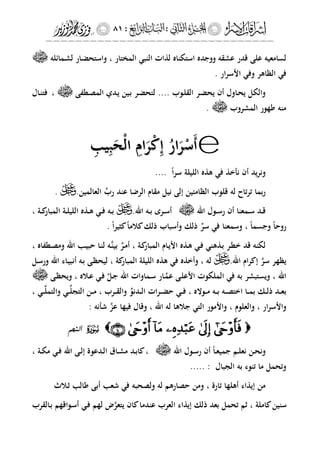 إشراقات الأسرار الجزء الثاني : الباب الثاني : ٨١
لسامعيه على قدر عشقه ووجده استكناه لذات النبي المختار ، واستحضار لشمائله ﷺ
في الظاهر وفي الأسرار .
والكل يحاول أن يحضر القلوب .... لتحضر بين يدي المصطفى ﷺ ، فتنال
منه طهور المشروب .
أَسْرَارُ إِكْرَامِ الْحَبِيبِ
ونريد أن نأخذ في هذه الليلة سراً ....
ربما ترتاح له قلوب الظامئين إلى نيل مقام الرضا عند ربِّ العالمين .
قد سمعنا أن رسول الله ﷺ أسرى به الله به في هذه الليلة المباركة ،
روحاً وجسماً ، وسمعنا في سرِّ ذلك وأسباب ذلك كلاماً كثيراً .
لكنه قد خطر بذهني في هذه الأيام المباركة ، أمرٌ بيَّنه لنا حبيب الله ومصطفاه ،
يظهر سرَّ إكرام الله له ، وأخذه في هذه الليلة المباركة ، ليحظى به أنبياء الله ورسل
الله ، ويستبشر به في الملكوت الأعلى عمَّار سماوات الله جلَّ في علاه ، ويحظى
بعد ذلك بما اختصه به مولاه ، في حضرات الدنوِّ والقرب ، من التجلِّي والتملِّي ،
والأسرار ، والعلوم ، والأمور التي جلاها له الله ، وقال فيها عزَّ شأنه :
﴿ فَأَوْحَىٰٓ إِلَىٰ عَبْدِهِۦ مَآ أَوْحَىٰ ﴾ النجم
ونحن نعلم جميعاً أن رسول الله ﷺ ، كابد مشاق الدعوة إلى الله في مكة ،
وتحمل ما تنوء به الجبال : .....
من إيذاء أهلها تارة ، ومن حصارهم له ولصحبه في شعب أبى طالب ثلاث
سنين كاملة ، ثم تحمل بعد ذلك إيذاء العرب عندما كان يتعرَّض لهم في أسواقهم بالقرب